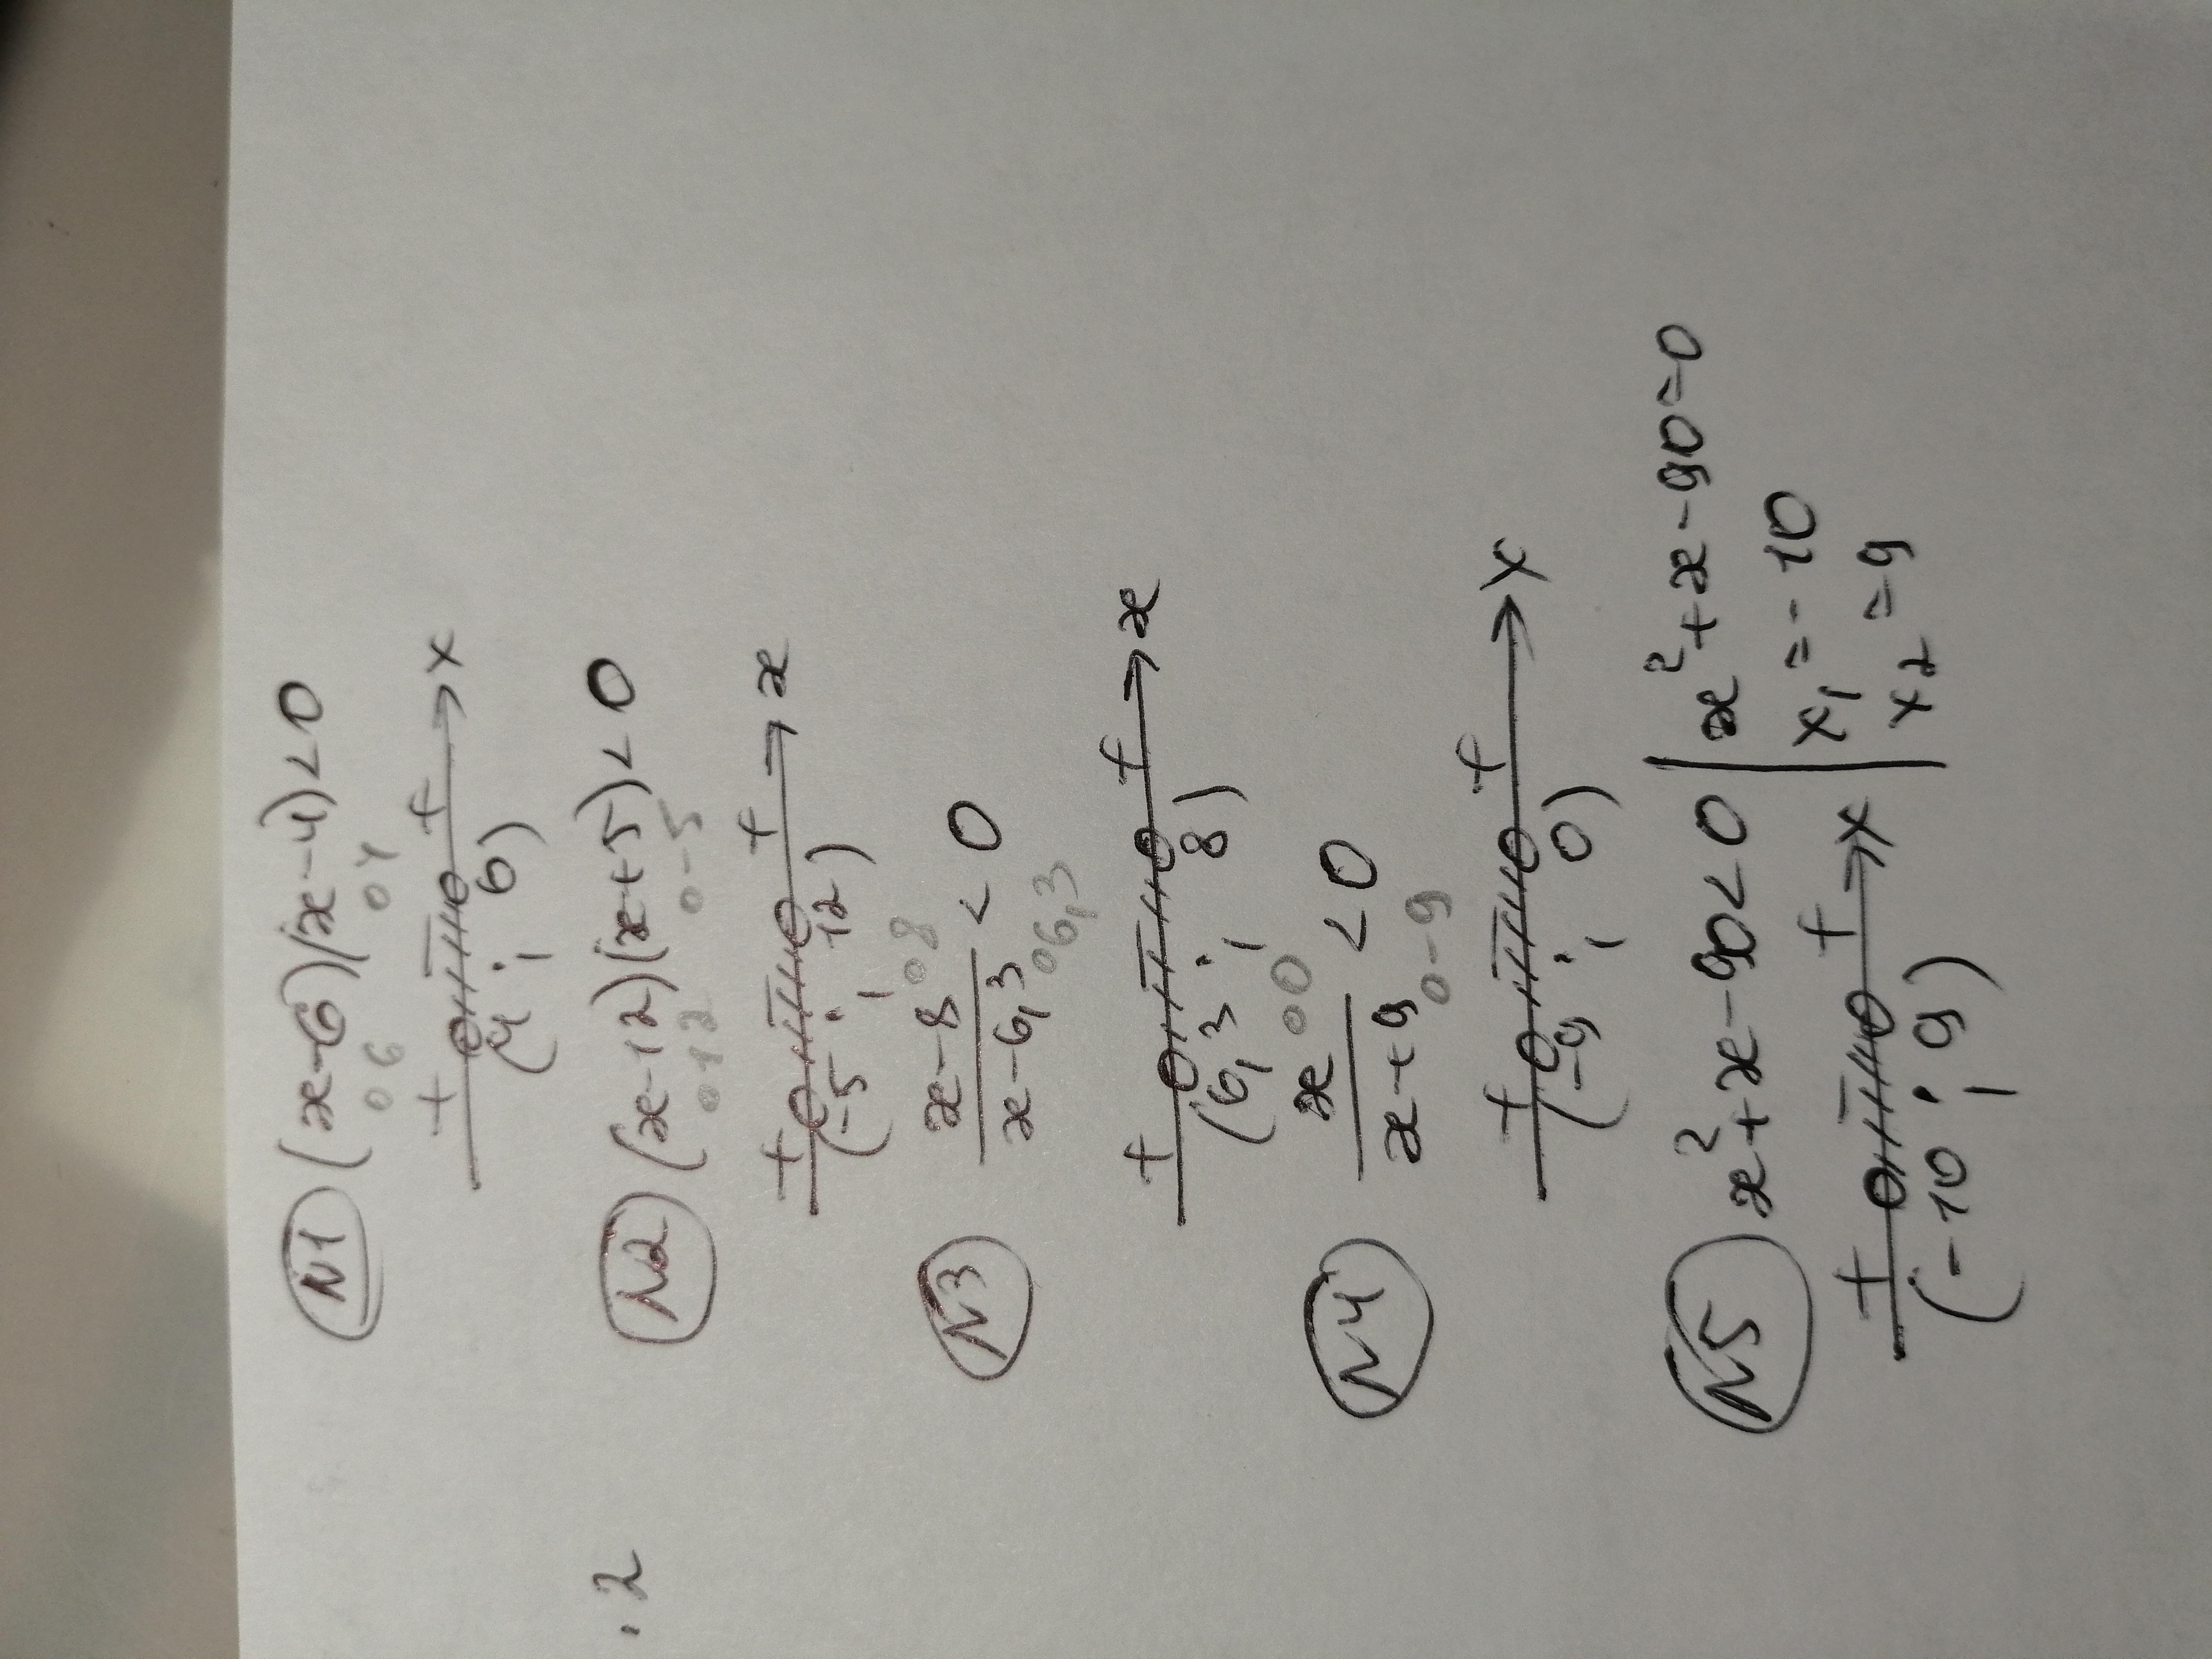 N1 (x-6)(x-4)<0
06 04
+ - + x
(4 ; 6)
N2 (x-12)(x+5)<0
012 0-5
+ - + x
(-5 ; 12)
N3 x-8 / x-6,3 < 0
08
06,3
+ - + x
(6,3 ; 8)
N4 x / x+9 < 0
00
0-9
+ - + x
(-9 ; 0)
N5 x²+x-90<0 | x²+x-90=0
x₁=-10
x₂=9
+ - + x
(-10 ; 9)
.2